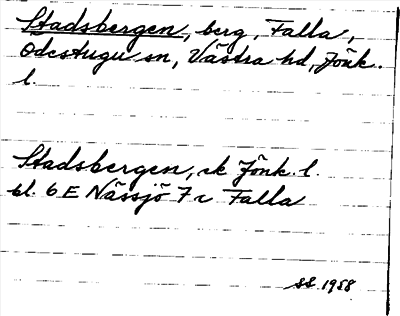 Stadsbergen, berg, Falla,
Odestugu sn, Västra hd, Jönk.
l.
Stadsbergen, ek Jönk. l.
bl. 6 E Nässjö 7 c Falla
SS 1958